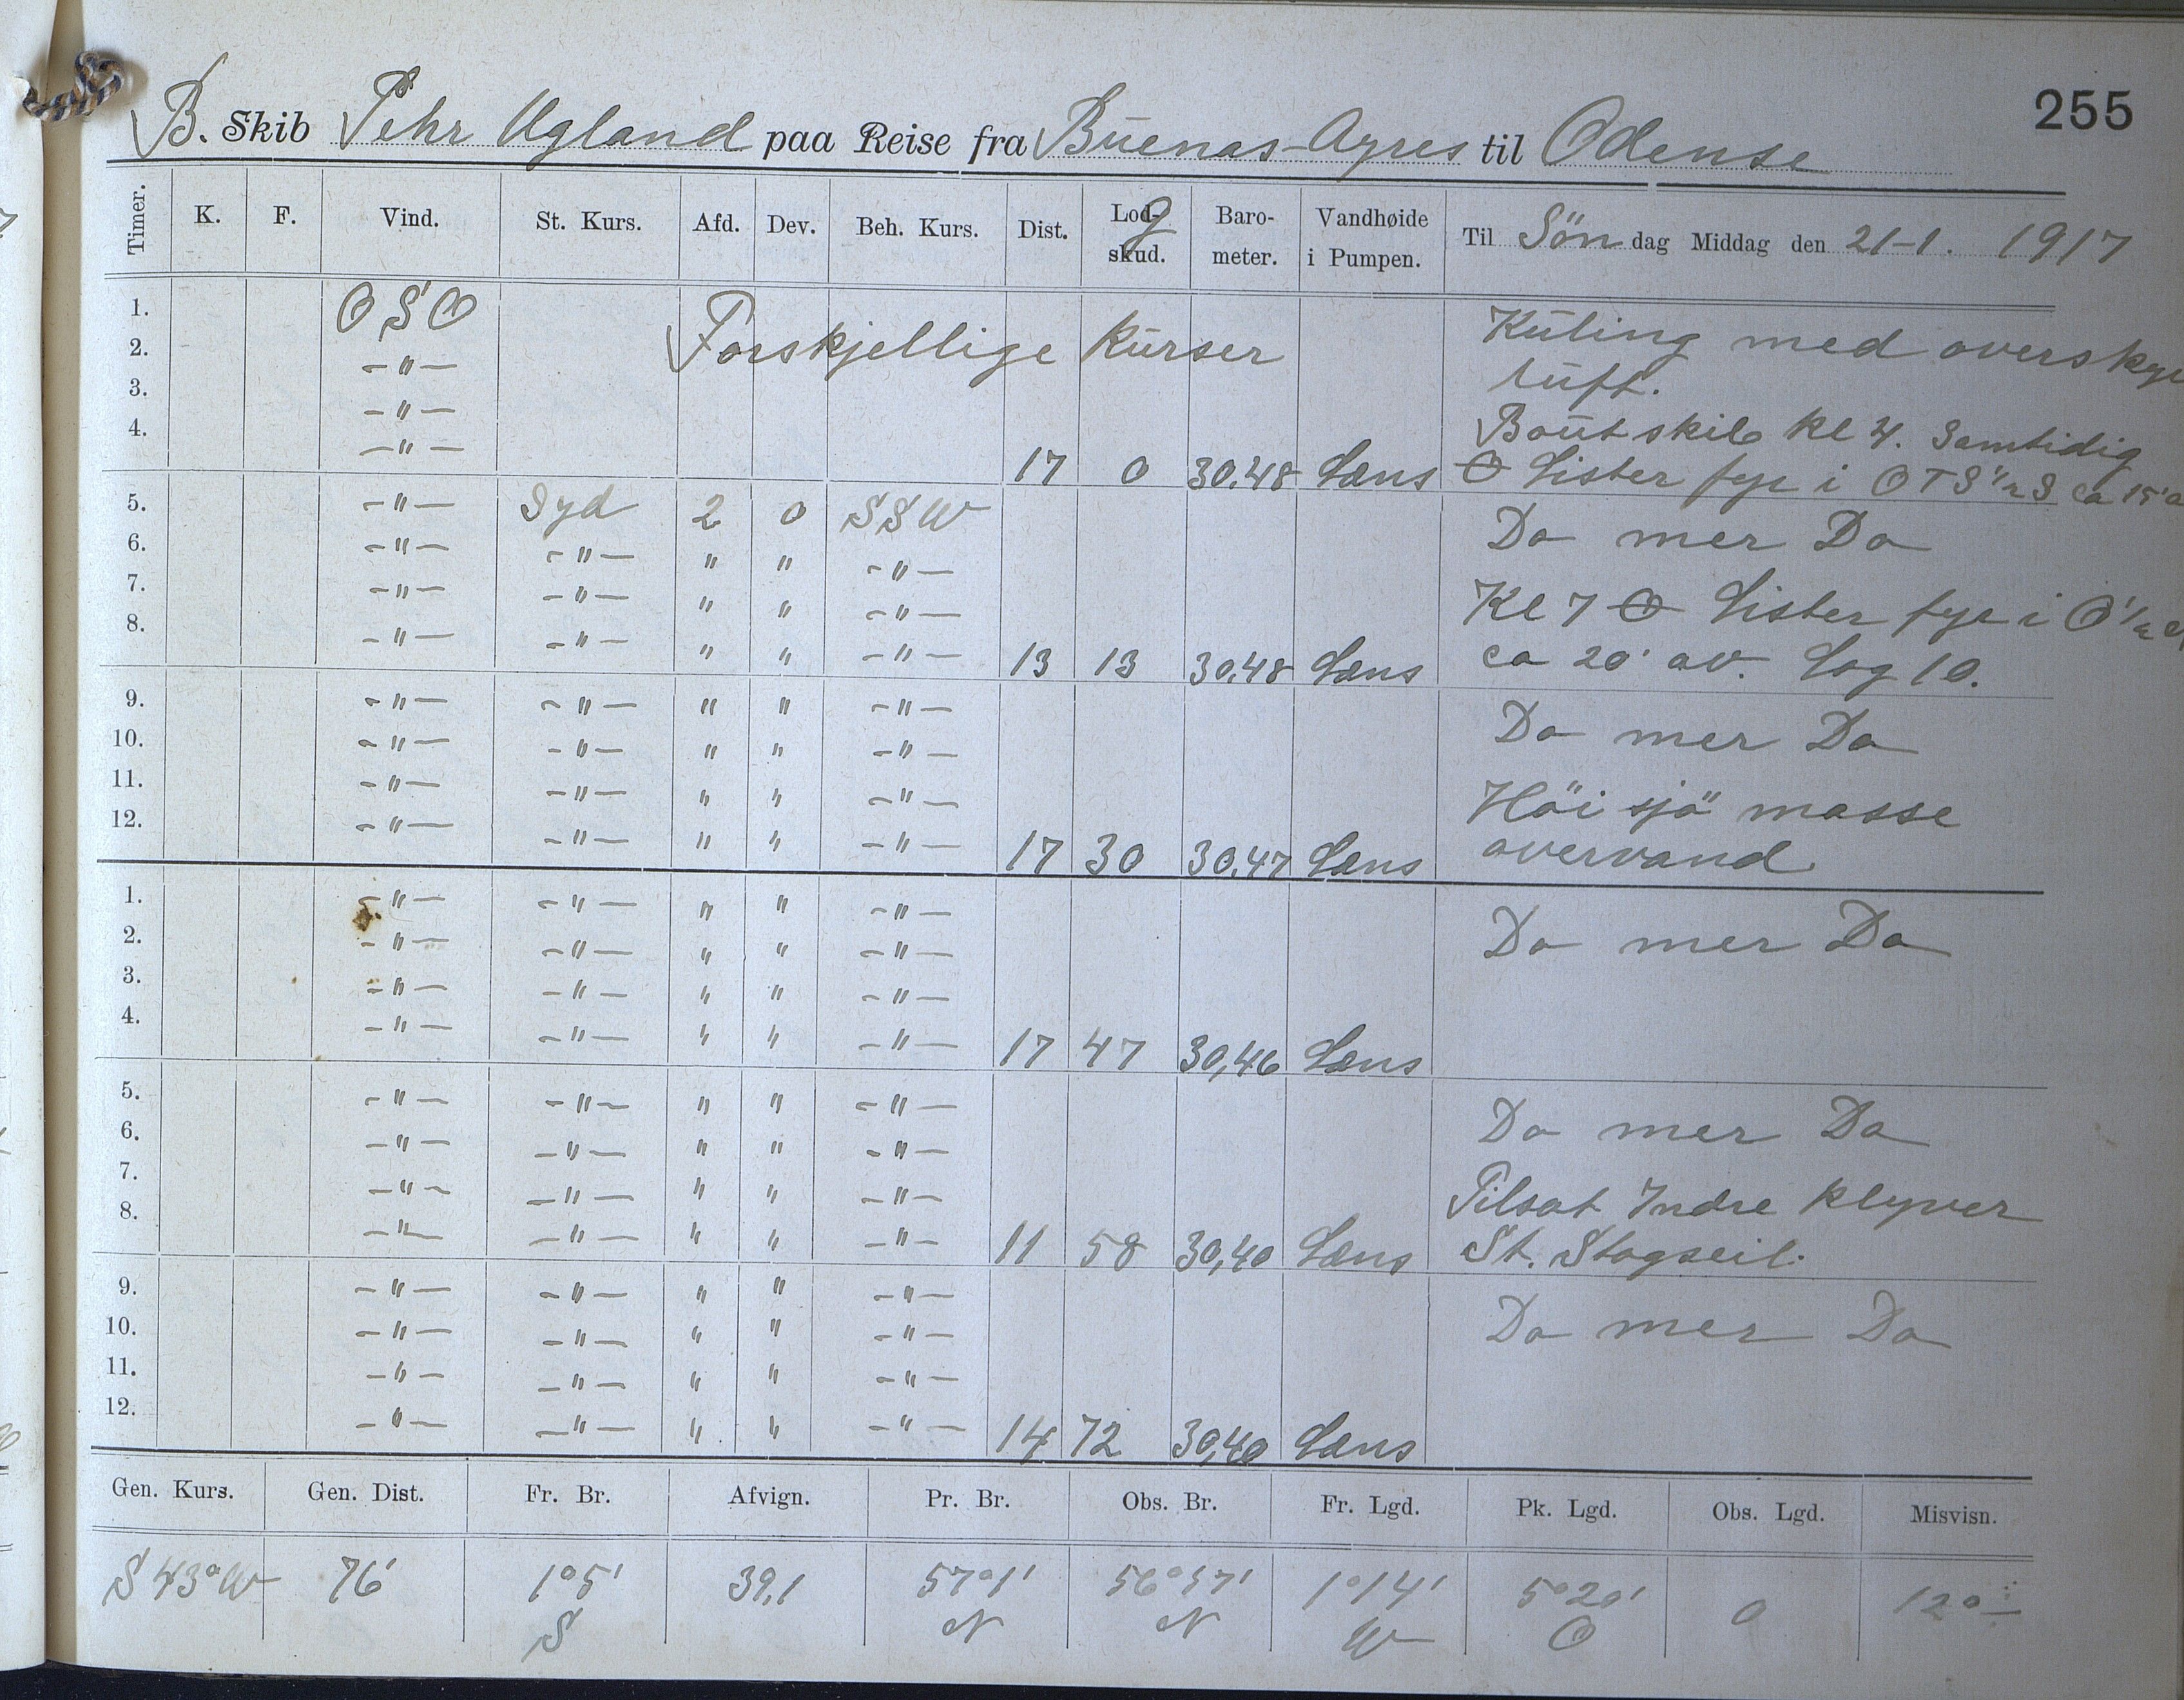 255
B. Skib Pehr Ugland paa Reise fra Buenas-Ayres til Odense
Timer. K. F. Vind. St. Kurs. Afd. Dev. Beh. Kurs. Dist. Log-skud. Baro-meter. Vandhøide i Pumpen. Til Søndag Middag den 21-1. 1917
1. OSO Forskjellige Kurser Kuling med overskye
2. -"- luft.
3. -"- Boutskib Kl 4. Samtidig
4. -"- 17 0 30.48 Læns Lister fyr i OTS 1/2 S ca 15'
5. -"- Syd 2 0 SSW Do mer Do
6. -"- -"- " " -"-
7. -"- -"- " " -"- Kl 7 Lister fyr i O 1/2
8. -"- -"- " " -"- 13 13 30.48 Læns ca 20' av. Log 10.
9. -"- -"- " " -"- Do mer Do
10. -"- -"- " " -"-
11. -"- -"- " " -"- Höi sjö masse
12. -"- -"- " " -"- 17 30 30.47 Læns overvand.
1. -"- -"- " " -"- Do mer Do
2. -"- -"- " " -"-
3. -"- -"- " " -"-
4. -"- -"- " " -"- 17 47 30,46 Læns
5. -"- -"- " " -"- Do mer Do
6. -"- -"- " " -"-
7. -"- -"- " " -"- Tilsat Indre klyver
8. -"- -"- " " -"- 11 58 30,40 Læns St. Stagseil.
9. -"- -"- " " -"- Do mer Do
10. -"- -"- " " -"-
11. -"- -"- " " -"-
12. -"- -"- " " -"- 14 72 30,40 Læns
Gen. Kurs. Gen. Dist. Fr. Br. Afvign. Pr. Br. Obs. Br. Fr. Lgd. Pk. Lgd. Obs. Lgd. Misvisn.
S 43° W 76' 1°5' S 39,1 57°1' N 56°57' N 1°14' W 5°20' O 0 12°